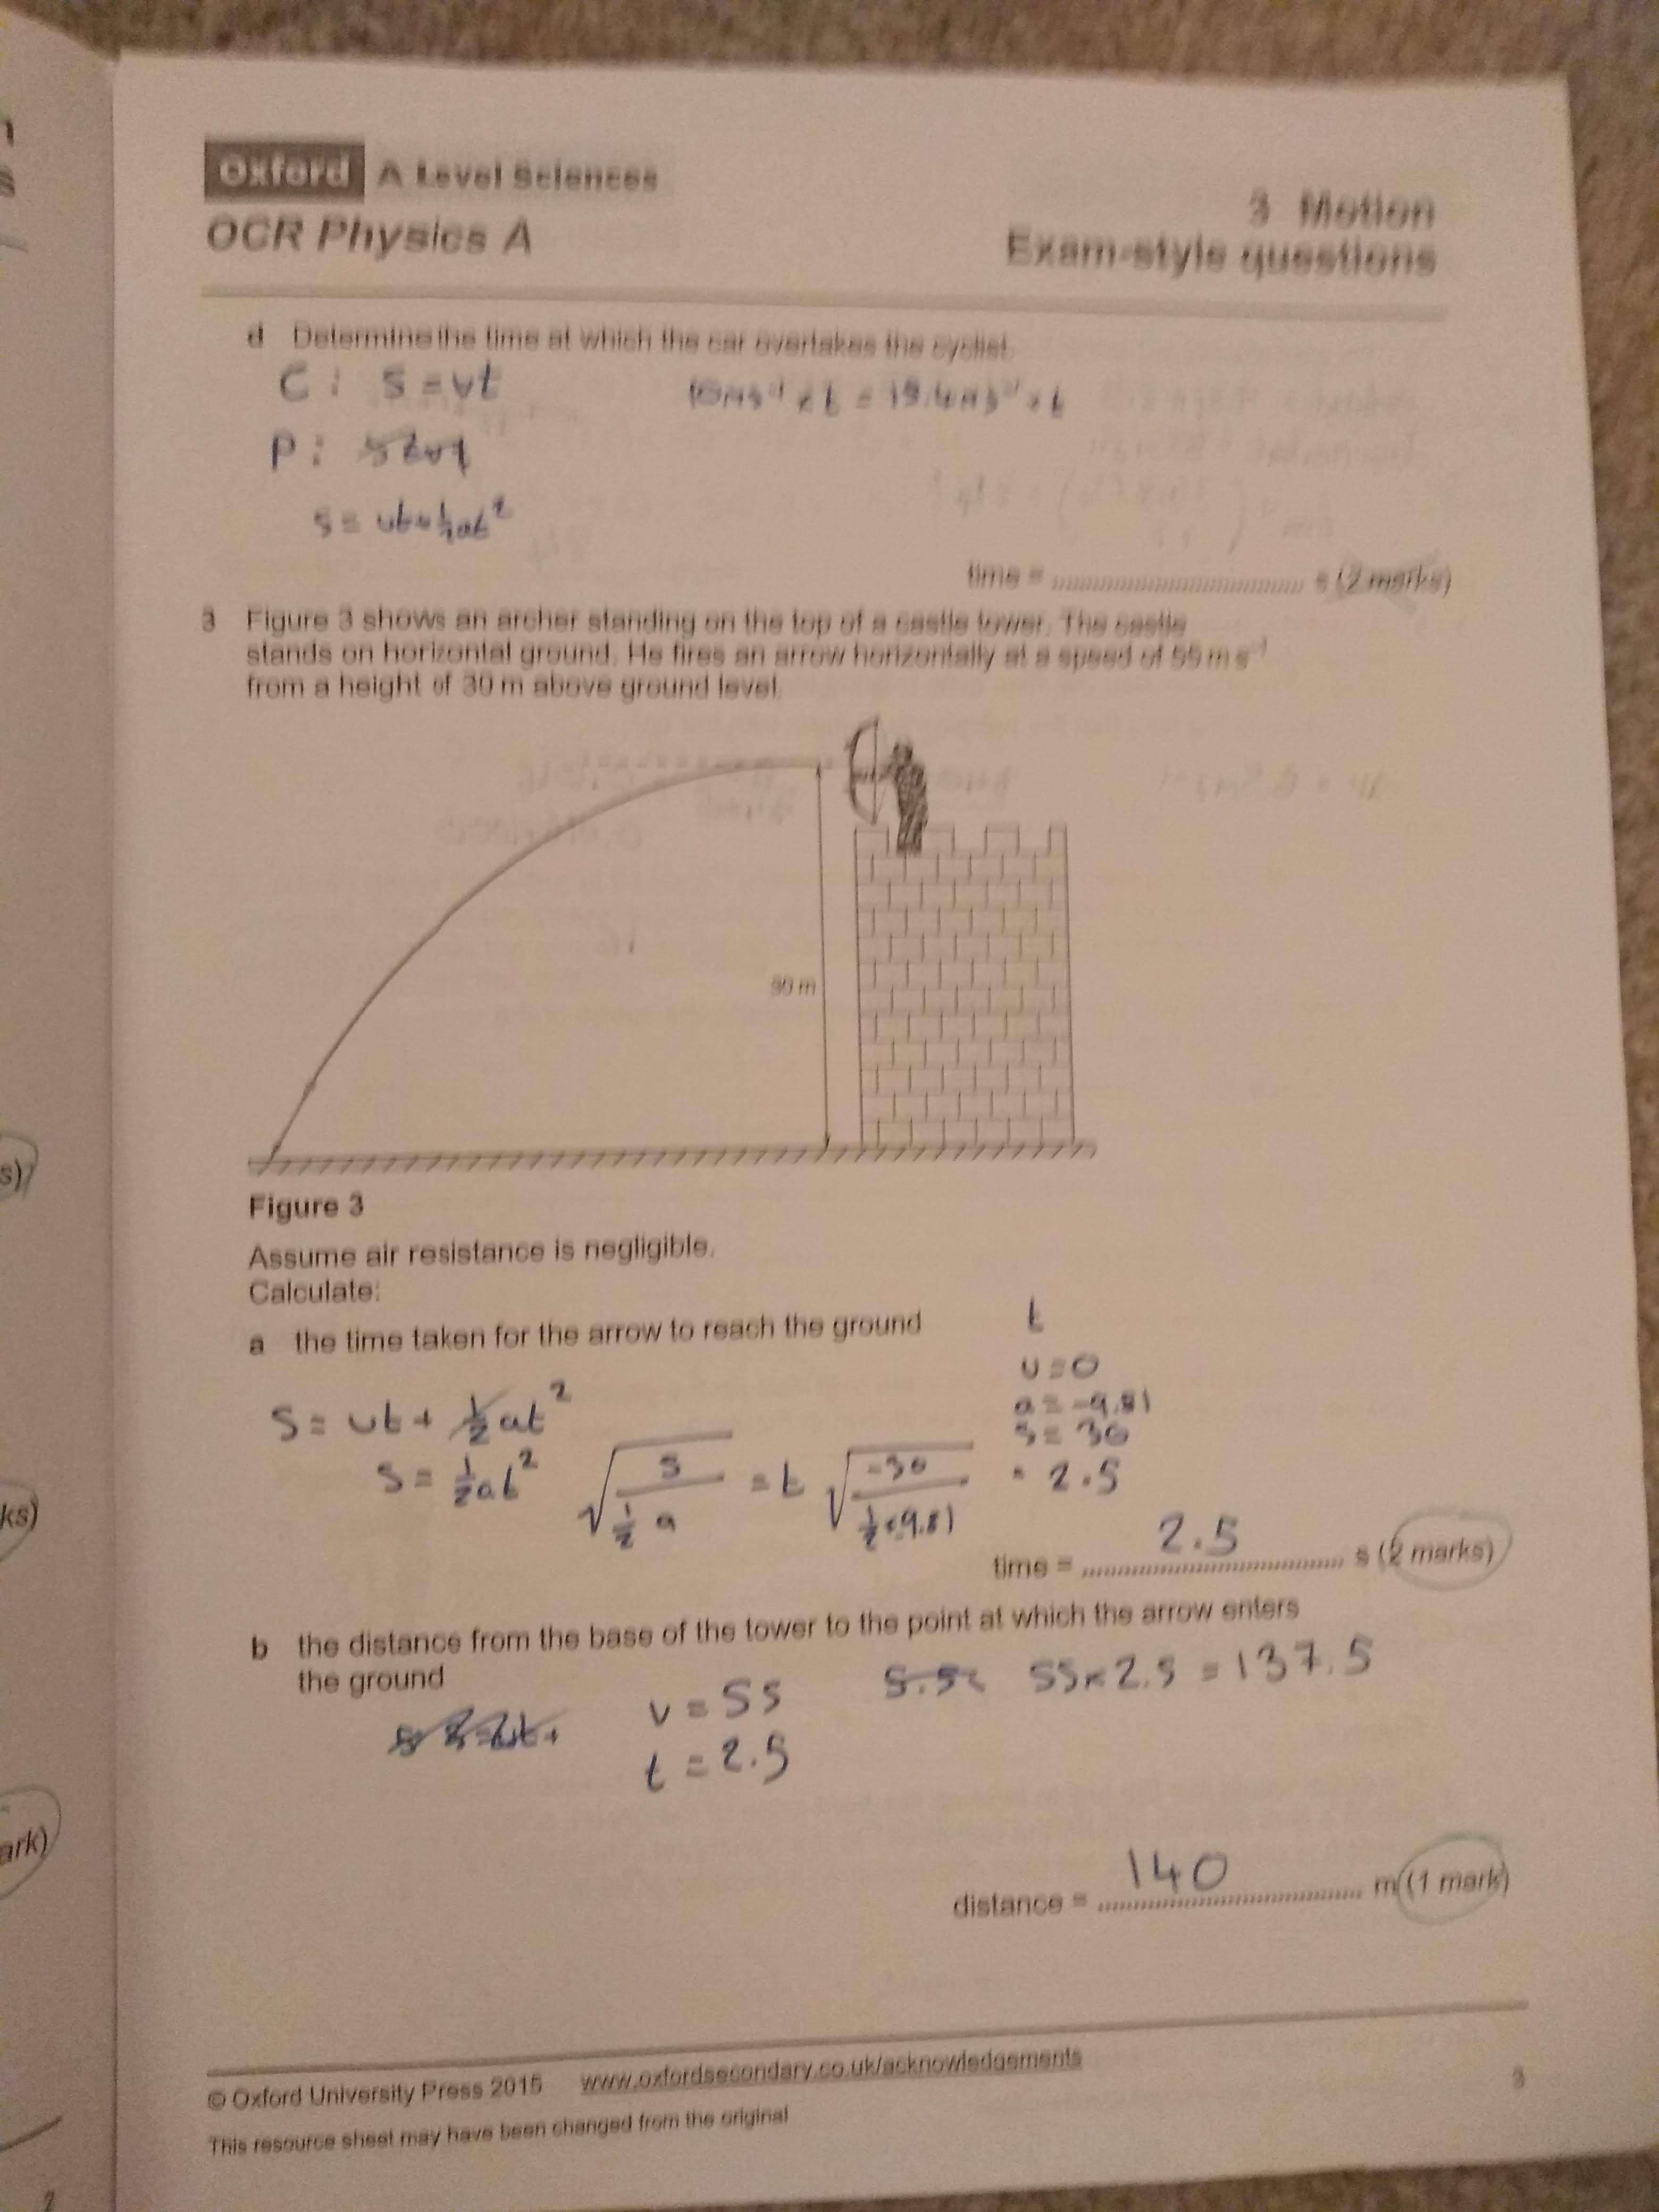 Oxford A Level Sciences
OCR Physics A
3 Motion
Exam-style questions
d Determine the time at which the car overtakes the cyclist.
C : s = vt
P :
s = ut + ½at²
time = ........ s (2 marks)
3 Figure 3 shows an archer standing on the top of a castle tower. The castle
stands on horizontal ground. He fires an arrow horizontally at a speed of 55 m s⁻¹
from a height of 30 m above ground level.
30 m
Figure 3
Assume air resistance is negligible.
Calculate:
a the time taken for the arrow to reach the ground
t
u = 0
a = -9.81
s = 30
s = ut + ½at²
s = ½at² √(s / ½ a) = t √(-30 / ½ × -9.81) = 2.5
time = 2.5 s (2 marks)
b the distance from the base of the tower to the point at which the arrow enters
the ground
v = 55
t = 2.5
55 × 2.5 = 137.5
distance = 140 m (1 mark)
© Oxford University Press 2015 www.oxfordsecondary.co.uk/acknowledgements
This resource sheet may have been changed from the original
3
s)
ks)
ark)
2